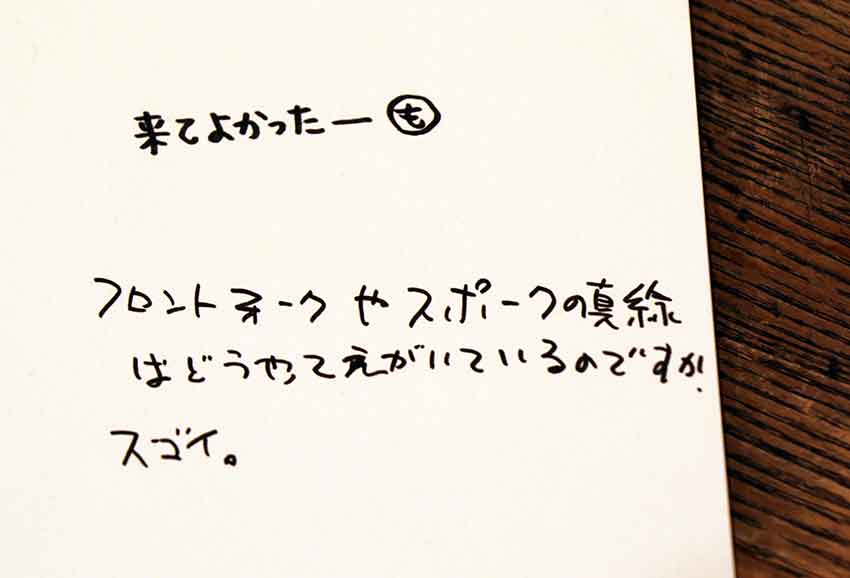 来てよかったー も
フロントヲークやスポークの真線
はどうやってえがいているのですか?
スゴイ。